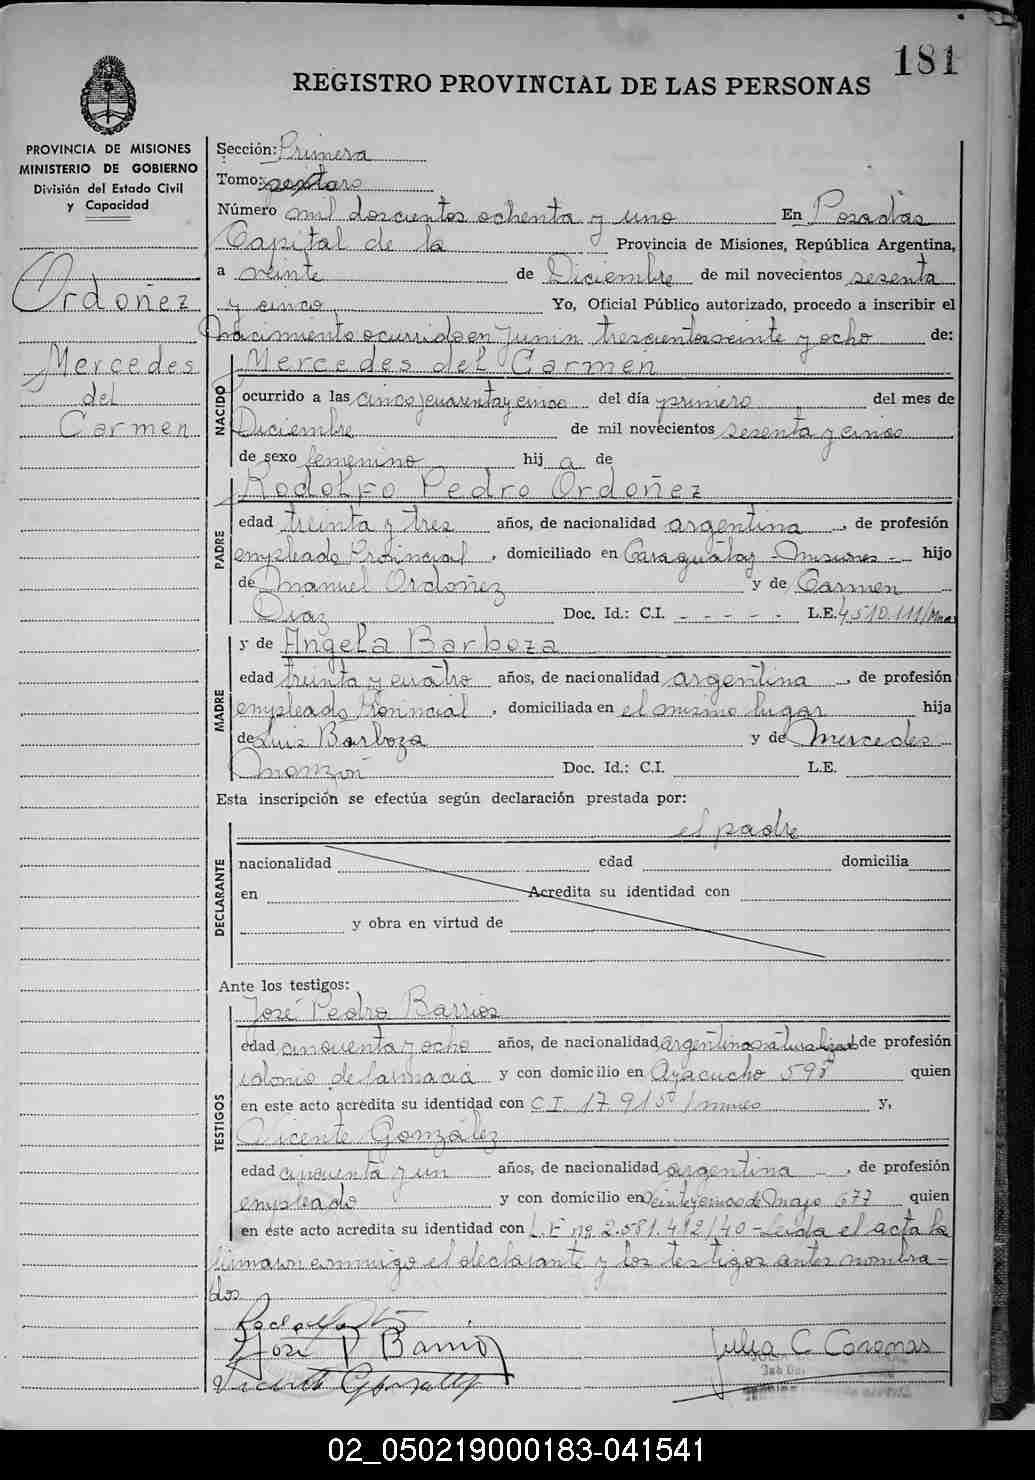 181
REGISTRO PROVINCIAL DE LAS PERSONAS
PROVINCIA DE MISIONES
MINISTERIO DE GOBIERNO
División del Estado Civil
y Capacidad
Ordoñez
Mercedes
del
Carmen
Sección: Primera
Tomo:
Número mil doscientos ochenta y uno En Posadas
Capital de la Provincia de Misiones, República Argentina,
a veinte de Diciembre de mil novecientos sesenta
y cinco Yo, Oficial Público autorizado, procedo a inscribir el
Nacimiento ocurrido en Junin trescientos veinte y ocho de:
NACIDO
Mercedes del Carmen
ocurrido a las cinco y cuarenta y cinco del día primero del mes de
Diciembre de mil novecientos sesenta y cinco
de sexo femenino hij a de
PADRE
Rodolfo Pedro Ordoñez
edad treinta y tres años, de nacionalidad argentina, de profesión
empleado Provincial, domiciliado en Caraguatay - Misiones - hijo
de Manuel Ordoñez y de Carmen
Diaz Doc. Id.: C.I. - - - - - L.E. 4.510.111/
MADRE
y de Angela Barboza
edad treinta y cuatro años, de nacionalidad argentina, de profesión
empleada Provincial, domiciliada en el mismo lugar hija
de Luis Barboza y de Mercedes
Monzón Doc. Id.: C.I. L.E.
Esta inscripción se efectúa según declaración prestada por:
DECLARANTE
el padre
nacionalidad edad domicilia
en Acredita su identidad con
y obra en virtud de
Ante los testigos:
TESTIGOS
José Pedro Barrios
edad cincuenta y ocho años, de nacionalidad argentina naturalizado de profesión
idonio de farmacia y con domicilio en Ayacucho quien
en este acto acredita su identidad con C.I. y,
Vicente González
edad cincuenta y un años, de nacionalidad argentina, de profesión
empleado y con domicilio en Veinte y cinco de Mayo 677 quien
en este acto acredita su identidad con L.E nº 2.581.412/40 - Leida el acta la
firmaron conmigo el declarante y los testigos antes nombra-
dos
José P Barrios
Vicente Gonzalez
Julia C
02_050219000183-041541